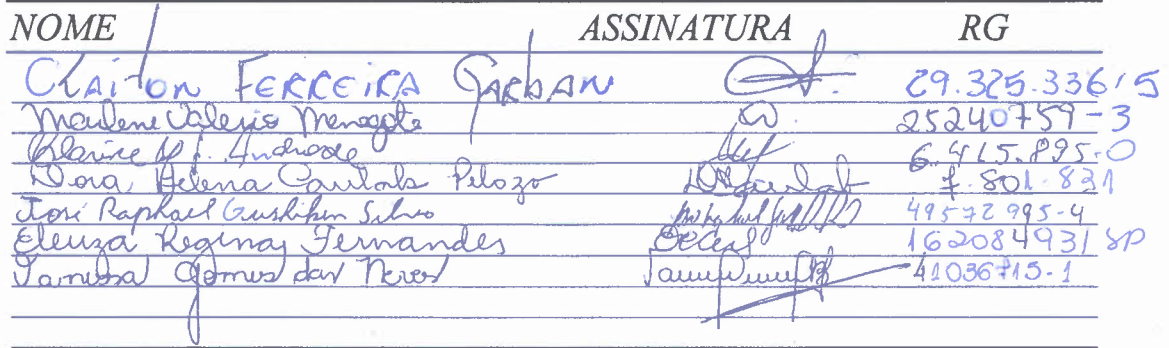 NOME ASSINATURA RG
CLAITON FERREIRA GARBAN 29.325.336/5
Marlene Valerio Menegate 25240759-3
Clarice Andrade 6.415.895-0
Dora Helena Pelozo 7.801.831
José Raphael Gushiken Silva 49572995-4
Eleuza Regina Fernandes 162084931 SP
Vanessa Gomes das Neves 41036715-1